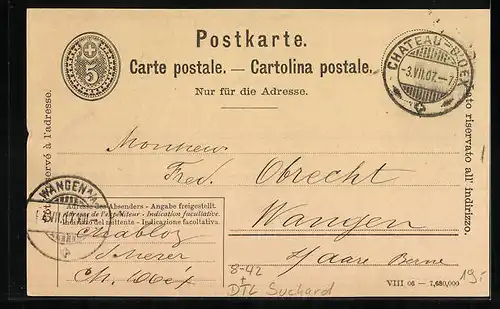 Postkarte.
Carte postale. — Cartolina postale.
Nur für die Adresse.
5
CHATEAU-D'OEX
-3.VII.07.-7
Côté réservé à l'adresse.
Lato riservato all' indirizzo.
Monsieur
Fred. Obrecht
Wangen
s/Aare Berne
WANGEN A/A.
VII.07
Adresse des Absenders - Angabe freigestellt.
Adresse de l'expéditeur - Indication facultative.
Indirizzo del mittente - Indicazione facoltativa.
Chabloz
Scherer
Ch. d'Oex
8-42
+
DTL Suchard
VIII 06 — 7,680,000
19.-